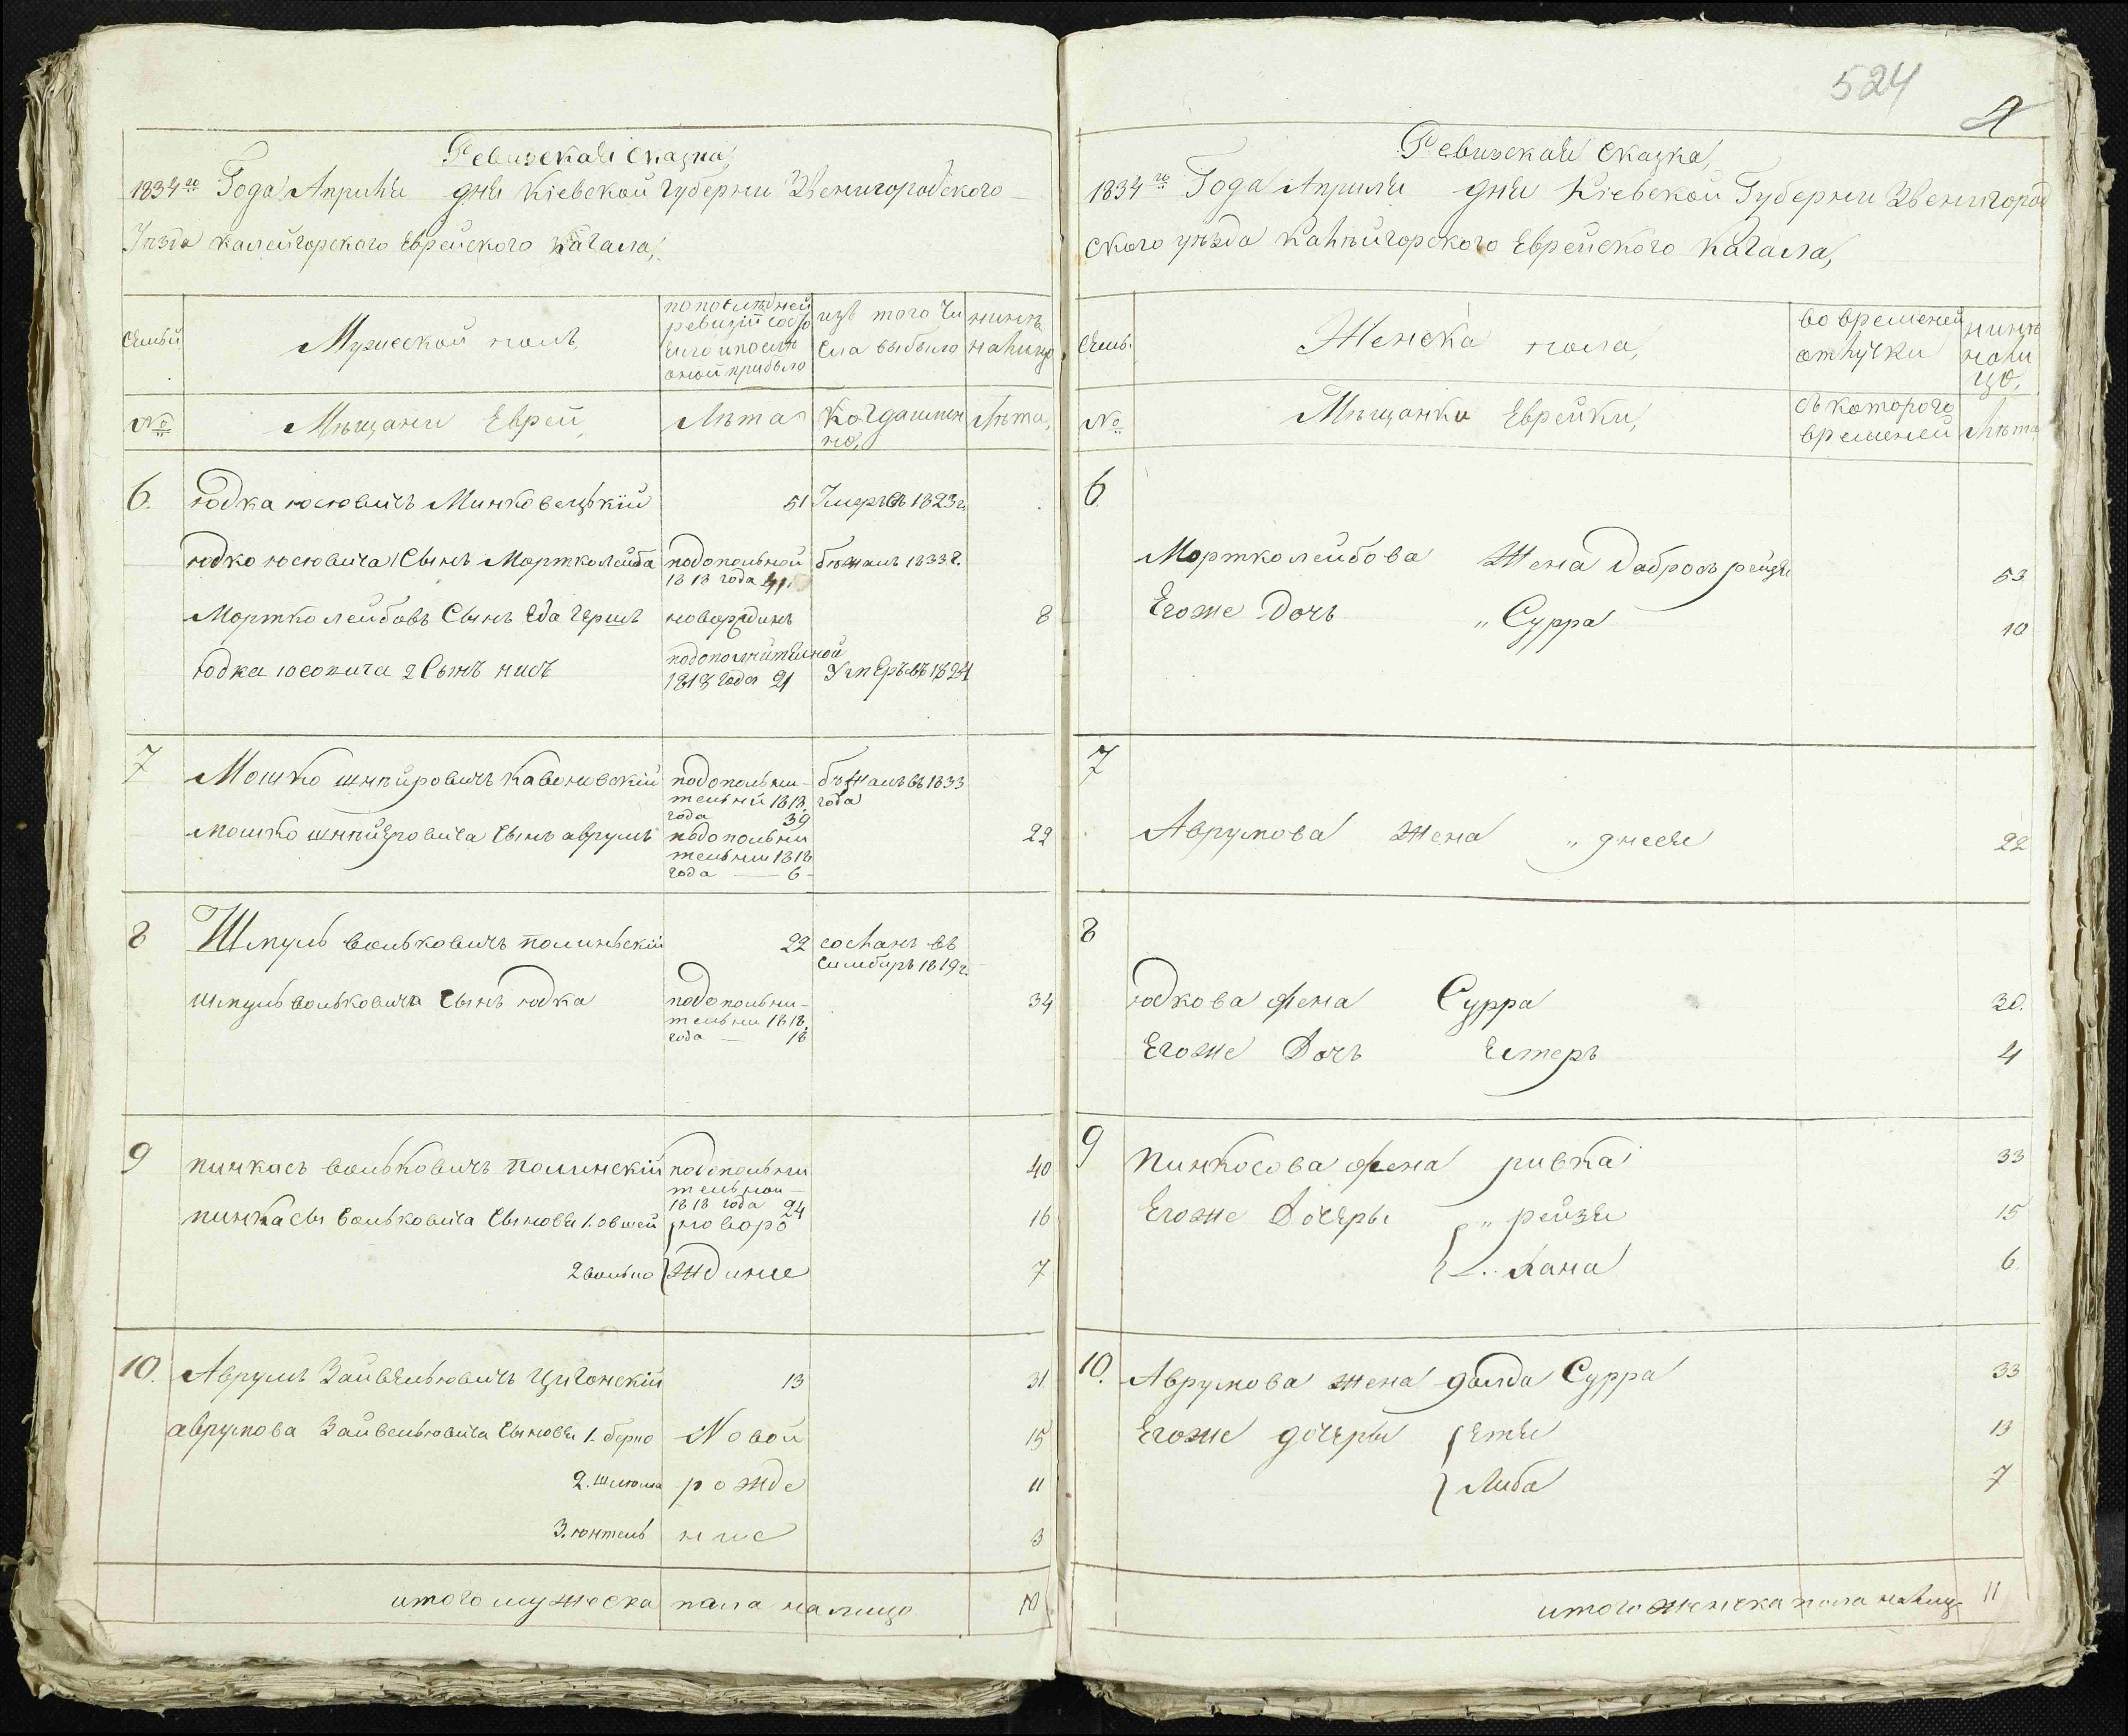 Ревизская сказка,
1834го Года Априля дня Кіевской губерни Звенигородского
Уезда калейгорского Еврейского кагала,
Семьи
Мужеской полъ
по последней
ревизіи состо
яло и после
оной прибыло
изъ того чи
сла выбыло
нине
налицо
№
Мещани Еврей
Лѣта
Когда имен
но,
Лѣта,
6. юдка юсіовичъ Минковецъкій 51 Умеръ въ 1823г.
юдко юсіовича Сынъ Мортко лейба подополной бежалъ 1833г.
1818 года 41.
Мортко лейбовъ Сынъ Еда Гершъ новорждинъ 8
юдка юсовича 2 Сынъ нисъ подополнителной Умеръ въ 1824
1818 года 21
7 Мошко шпъйровичъ Кавоновскій подополни- бежалъ въ 1833
тельний 1818. года
года 39
мошко шпийгровича Сынъ аврумъ подополни 22
тельни 1818
года — 6
8 Шмуль волковичъ полинъскій 22 сосланъ въ
Симбиръ 1819г.
шмуль вольковича Сынъ юдка подополни- 34
тельни 1818.
года — 18
9 пинкасъ вольковичъ полинскій подополни 40
тельной
1818 года 24
пинкасы вольковича Сыновя 1. овшей новоро 16
2 волько ждиние 7
10. Аврумъ Зайвельювичъ Цигонскій 13 31
аврумова Зайвельювича Сыновя 1. берко Новой 15
2. шлюма рожде 11
3. юнтель ние 3
итого мужеска пала налицо 10
524
4
Ревизская Сказка,
1834го Года Априля дня Кіевской Губерни Звенигород
ского уезда Калнъйгорского Еврейского Кагала,
Семь.
Женска пола,
во временей
отлучки
нине
нали
цо,
№
Мещанки Еврейки,
съ которого
временей
Лѣта
6
Мортколейбова Жена Добрось рейзя 53
Егоже Дочь " Сурра 10
7
Аврумова Жена " днеся 22
8
юдкова жена Сурра 30.
Егоже Дочь Естеръ 4
9 Пинкосова жена ривка 33
Егоже Дочеры " рейзя 15
хана 6
10. Аврумова жена голда Сурра 33
Егоже дочеры Етя 13
Либа 7
итого женска пола налиц 11